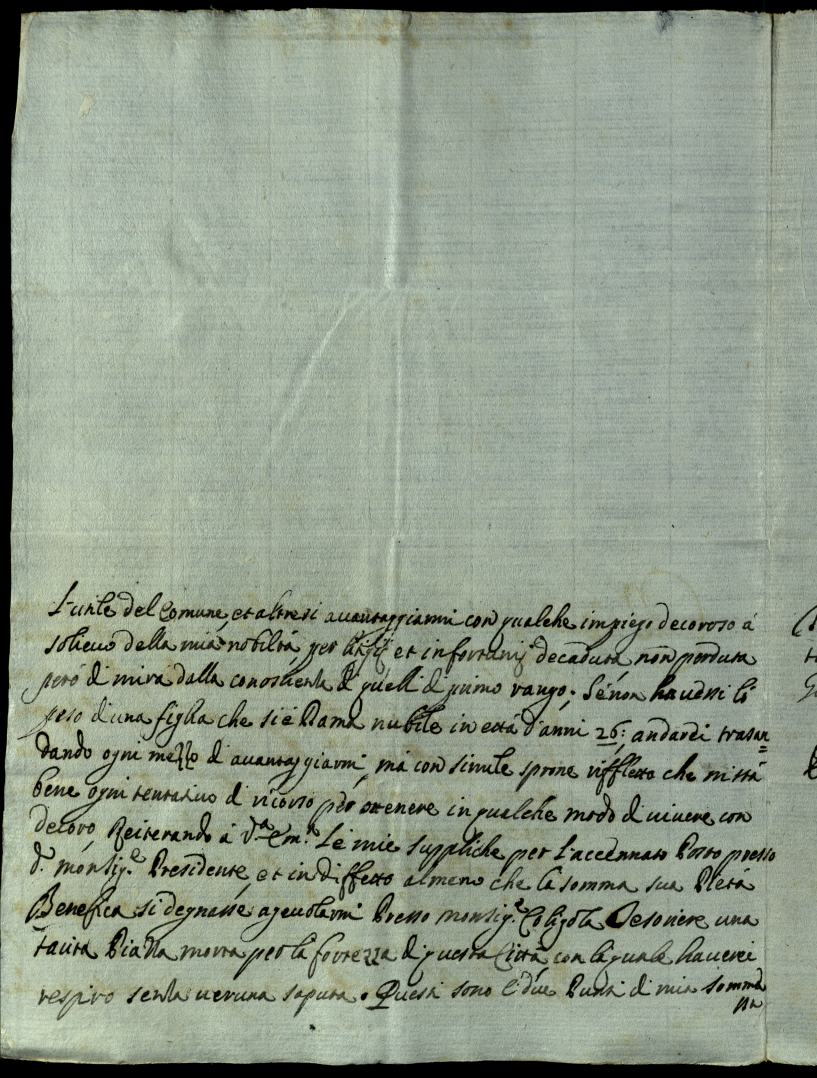 L'utile del Comune, et altresi avantaggiarmi con qualche impiego decoroso à
solieuo della mia nobiltà, per litiggij et infortunij decaduta, non perduta
però di mira dalla conoscienza di quelli di primo rango. Se non havessi il
peso d'una figlia che si è Dama nubile in età d'anni 26: andarei trasan=
dando ogni mezzo di avantaggiarmi, mà con simile sprone rifletto che mi stà
bene ogni tentativo di ricorso per ottenere in qualche modo di vivere con
decoro, Reiterando à V.a Em.a le mie suppliche per l'accennato Posto presso
d.o monsig.e Presidente, et in diffetto almeno che la somma sua Pietà
Benefica si degnasse agevolarmi Presso monsig.e Coligola Tesoriere una
tanta Piazza morta per la fortezza di questa Città con la quale haverei
respiro senza veruna saputa. Questi sono li due Punti di mia somma